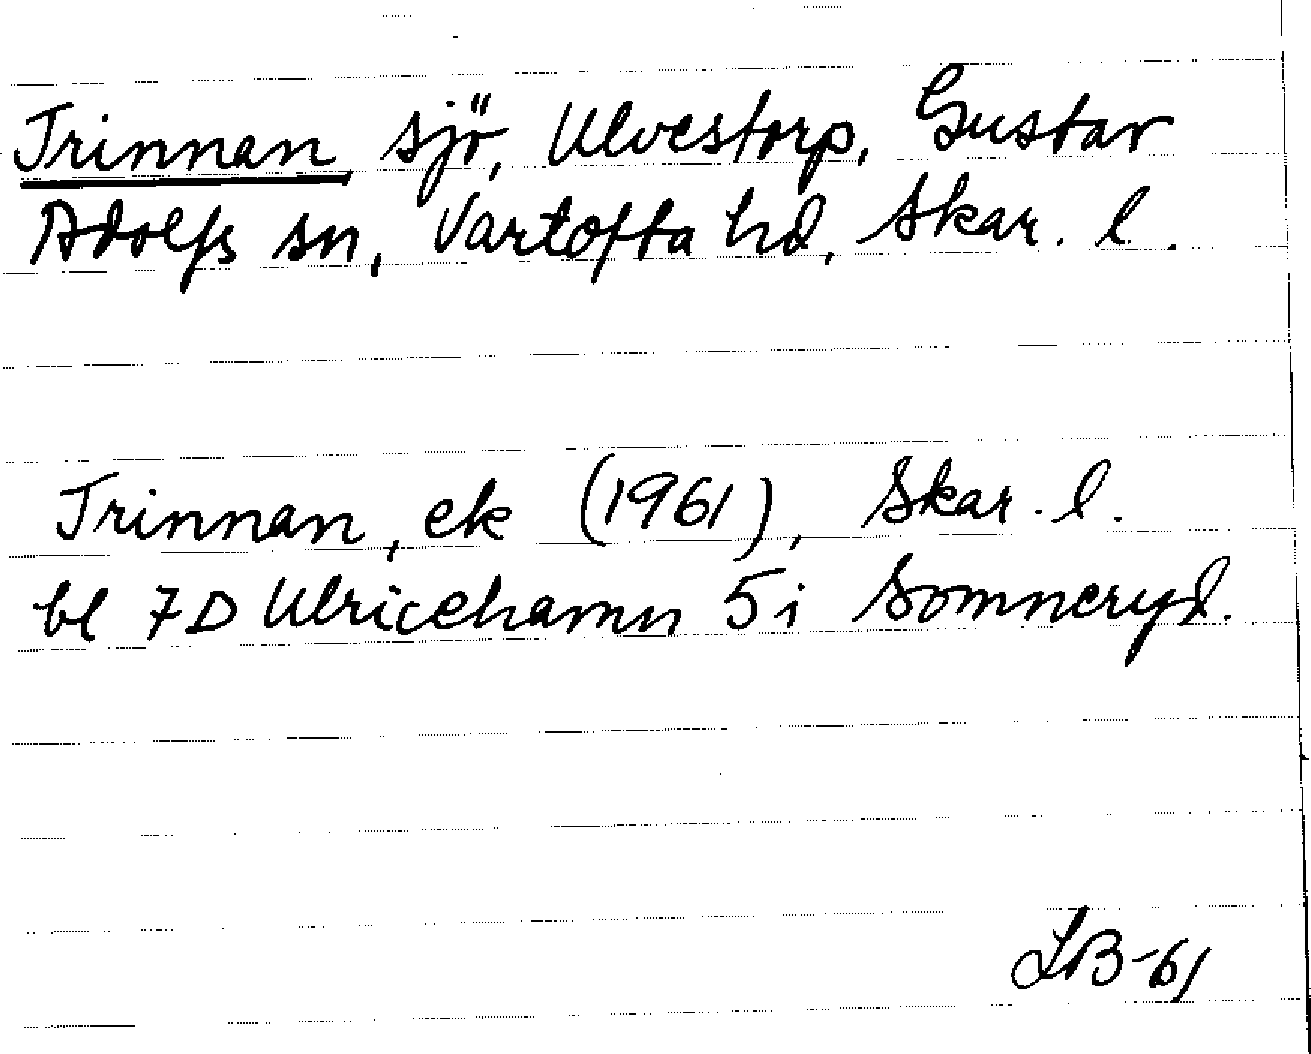 Trinnan sjö, Ulvestorp, Gustav
Adolfs sn, Vartofta hd, Skar. l.
Trinnan, ek (1961), Skar. l.
bl 7D Ulricehamn 5i Somneryd.
LB-61